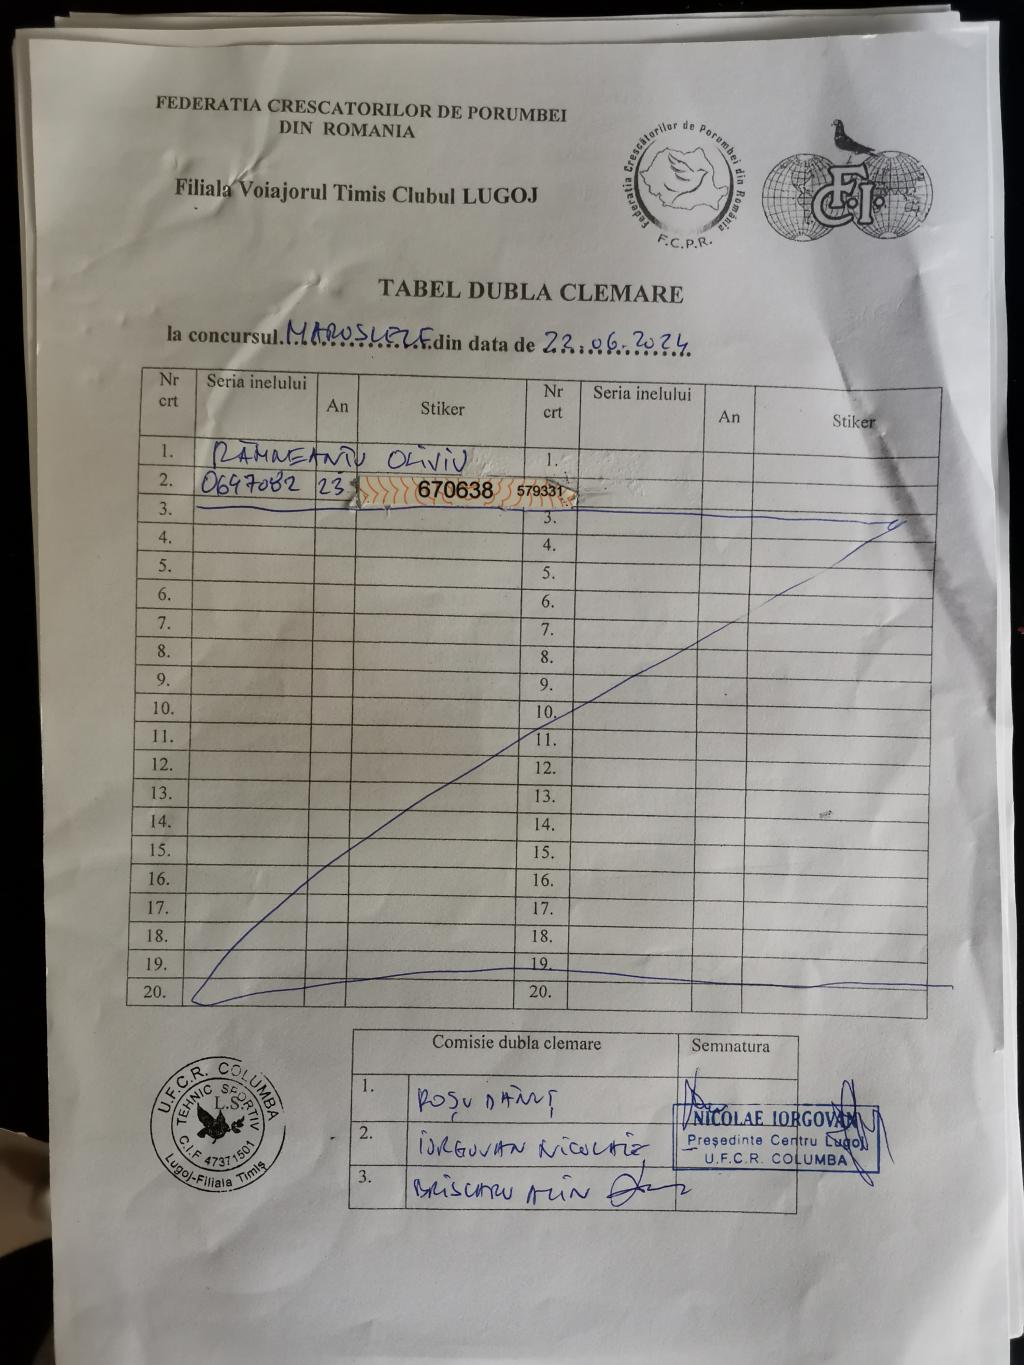 FEDERATIA CRESCATORILOR DE PORUMBEI
DIN ROMANIA
Federatia Crescătorilor de Porumbei din România
F.C.P.R.
F.C.I.
Filiala Voiajorul Timis Clubul LUGOJ
TABEL DUBLA CLEMARE
la concursul.MAROSLELE.din data de 22.06.2024
Nr crt Seria inelului An Stiker Nr crt Seria inelului An Stiker
1. RÂMNEANȚU OLIVIU 1.
2. 0647082 23 670638 579331
3. 3.
4. 4.
5. 5.
6. 6.
7. 7.
8. 8.
9. 9.
10. 10.
11. 11.
12. 12.
13. 13.
14. 14.
15. 15.
16. 16.
17. 17.
18. 18.
19. 19.
20. 20.
Comisie dubla clemare Semnatura
1. ROȘU DĂNUȚ
2. IORGOVAN NICOLAIE
3. BRISCARU ALIN
NICOLAE IORGOVAN
Președinte Centru Lugoj
U.F.C.R. COLUMBA
U.F.C.R. COLUMBA
TEHNIC SPORTIV
L.S.
C.I.F 47371501
Lugoj-Filiala Timiș